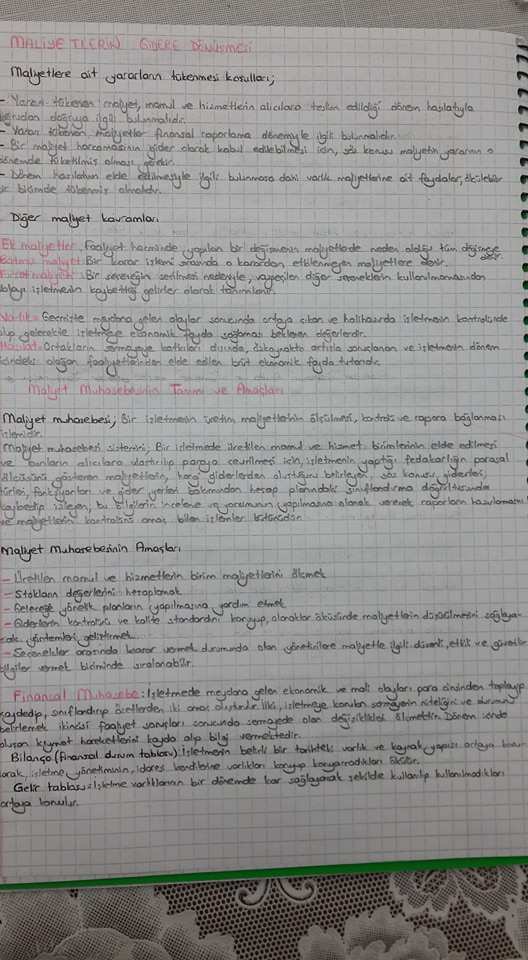 MALİYETLERİN GİDERE DÖNÜŞMESİ
Maliyetlere ait yararların tükenmesi koşulları;
- Yararı tükenen maliyet, mamul ve hizmetlerin alıcılara teslim edildiği dönem hasılatıyla
doğrudan doğruya ilgili bulunmalıdır.
- Yararı tükenen maliyetler finansal raporlama dönemiyle ilgili bulunmalıdır.
- Bir maliyet harcamasının gider olarak kabul edilebilmesi için, söz konusu maliyetin yararının o
dönemde tüketilmiş olması gerekir.
- Dönem hasılatının elde edilmesiyle ilgili bulunmasa dahi varlık maliyetlerine ait faydalar, ölçülebilir
bir biçimde tükenmiş olmalıdır.
Diğer maliyet kavramları
Ek maliyetler, Faaliyet hacminde yapılan bir değişmenin maliyetlerde neden olduğu tüm değişmeye denir.
Batmış maliyet: Bir karar işlemi sırasında o karardan etkilenmeyen maliyetlere denir.
Fırsat maliyeti: Bir seçeneğin seçilmesi nedeniyle, vazgeçilen diğer seçeneklerin kullanılmamasından
dolayı işletmenin kaybettiği gelirler olarak tanımlanır.
Varlık= Geçmişte meydana gelen olaylar sonucunda ortaya çıkan ve halihazırda işletmenin kontrolünde
olup gelecekte işletmeye ekonomik fayda sağlaması beklenen değerlerdir.
Hasılat: Ortakların sermayeye katkıları dışında, özkaynakta artışla sonuçlanan ve işletmenin dönem
içindeki olağan faaliyetlerinden elde edilen brüt ekonomik fayda tutarıdır.
Maliyet Muhasebesinin Tanımı ve Amaçları
Maliyet muhasebesi; Bir işletmenin üretim maliyetlerinin ölçülmesi, kontrolü ve rapora bağlanması
işlemidir.
Maliyet muhasebesi sistemini; Bir işletmede üretilen mamul ve hizmet birimlerinin elde edilmesi
ve bunların alıcılara ulaştırılıp paraya çevrilmesi için, işletmenin yaptığı fedakarlığın parasal
ölçüsünü gösteren maliyetlerin, hangi giderlerden oluştuğunu belirleyen söz konusu giderleri,
türleri, fonksiyonları ve gider yerleri bakımından hesap planındaki sınıflandırma doğrultusunda
kaydedip izleyen, bu bilgilerin inceleme ve yorumunun yapılmasına olanak verecek raporların hazırlanması
ve maliyetlerin kontrolünü amaç bilen işlemler bütünüdür.
Maliyet Muhasebesinin Amaçları
- Üretilen mamul ve hizmetlerin birim maliyetlerini ölçmek
- Stokların değerlerini hesaplamak
- Geleceğe yönelik planların yapılmasına yardım etmek
- Giderlerin kontrolünü ve kalite standardını koruyup, olanaklar ölçüsünde maliyetlerin düşürülmesini sağlaya-
cak yöntemleri geliştirmek.
- Seçenekler arasında karar vermek durumunda olan yöneticilere maliyetle ilgili düzenli, etkili ve güvenilir
bilgiler vermek biçiminde sıralanabilir.
Finansal Muhasebe: İşletmede meydana gelen ekonomik ve mali olayları para cinsinden toplayıp
kaydedip, sınıflandırıp özetlerden iki amaç oluşturur. İlki, işletmeye konulan sermayenin niteliğini ve durumunu
belirlemek ikincisi faaliyet sonuçları sonucunda sermayede olan değişiklikleri ölçmektir. Dönem içinde
oluşan kıymet hareketlerini kayda alıp bilgi vermektedir.
Bilanço (finansal durum tablosu): İşletmenin belirli bir tarihteki varlık ve kaynak yapısını ortaya koya-
rak, işletme yönetiminin, idaresi kendisine varlıkları koruyup koruyamadıkları ölçülür.
Gelir tablosu= İşletme varlıklarının bir dönemde kar sağlayacak şekilde kullanılıp kullanılmadıkları
ortaya konulur.